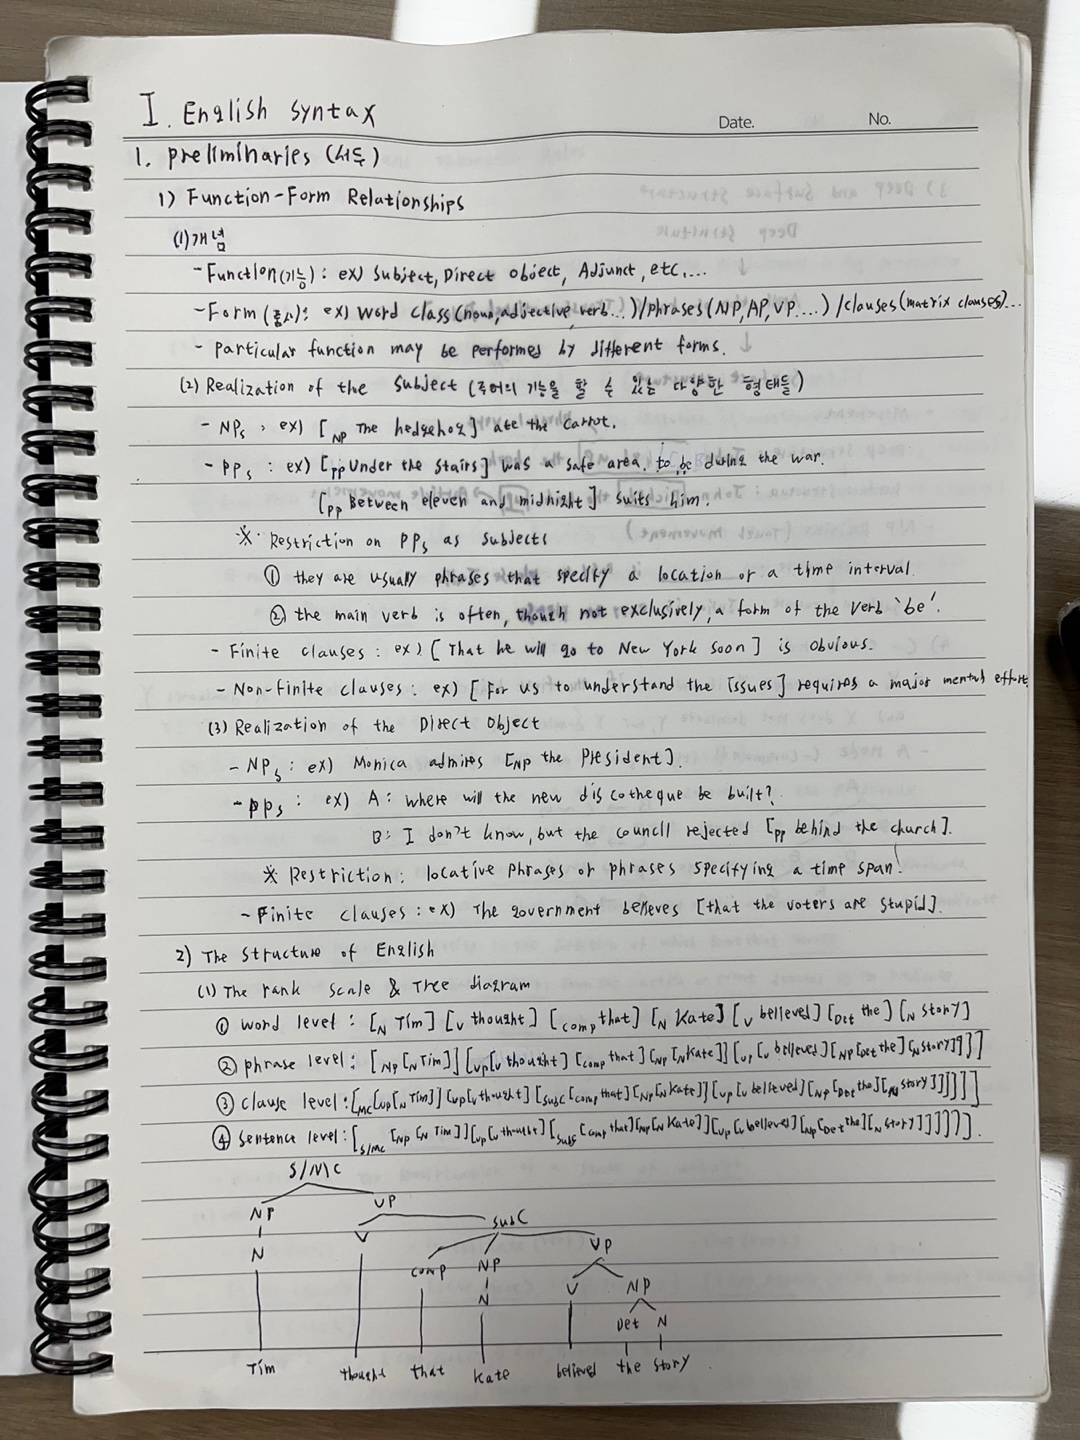 I. English Syntax
Date. No.
1. preliminaries (서두)
1) Function-Form Relationships
(1) 개념
- Function(기능) : ex) Subject, Direct object, Adjunct, etc,...
- Form (품사) : ex) Word class (noun, adjective, verb...) / phrases (NP, AP, VP....) / clauses (matrix clauses)...
- particular function may be performed by different forms.
(2) Realization of the Subject (주어의 기능을 할 수 있는 다양한 형태들)
- NPs : ex) [NP The hedgehog] ate the carrot.
- PPs : ex) [PP Under the stairs] was a safe area to be during the war.
[PP Between eleven and midnight] suits him.
※ Restriction on PPs as subjects
① they are usually phrases that specify a location or a time interval.
② the main verb is often, though not exclusively, a form of the verb 'be'.
- Finite clauses : ex) [That he will go to New York soon] is obvious.
- Non-finite clauses : ex) [For us to understand the issues] requires a major mental effort
(3) Realization of the Direct Object
- NPs : ex) Monica admires [NP the President].
- PPs : ex) A : where will the new discotheque be built?
B : I don't know, but the council rejected [PP behind the church].
※ Restriction : locative phrases or phrases specifying a time span!
- Finite clauses : ex) The government believes [that the voters are stupid].
2) The structure of English
(1) The rank scale & Tree diagram
① word level : [N Tim] [V thought] [comp that] [N Kate] [V believed] [Det the] [N story]
② phrase level : [NP [N Tim]] [VP [V thought] [comp that] [NP [N Kate]] [VP [V believed] [NP [Det the] [N story]]]]
③ clause level : [MC [NP [N Tim]] [VP [V thought] [SubC [comp that] [NP [N Kate]] [VP [V believed] [NP [Det the] [N story]]]]]]
④ sentence level : [S/MC [NP [N Tim]] [VP [V thought] [SubC [comp that] [NP [N Kate]] [VP [V believed] [NP [Det the] [N story]]]]]].
S/MC
NP VP
N V SubC
comp NP VP
N V NP
Det N
Tim thought that Kate believed the story